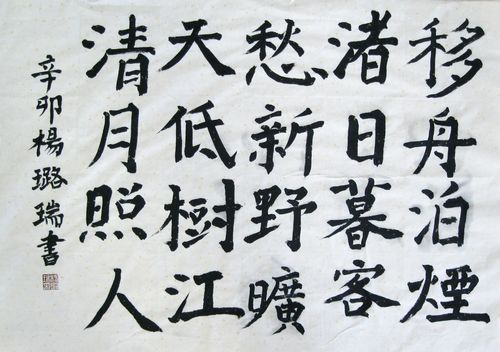 移舟泊煙
渚日暮客
愁新野曠
天低樹江
清月照人
辛卯楊璐瑞書